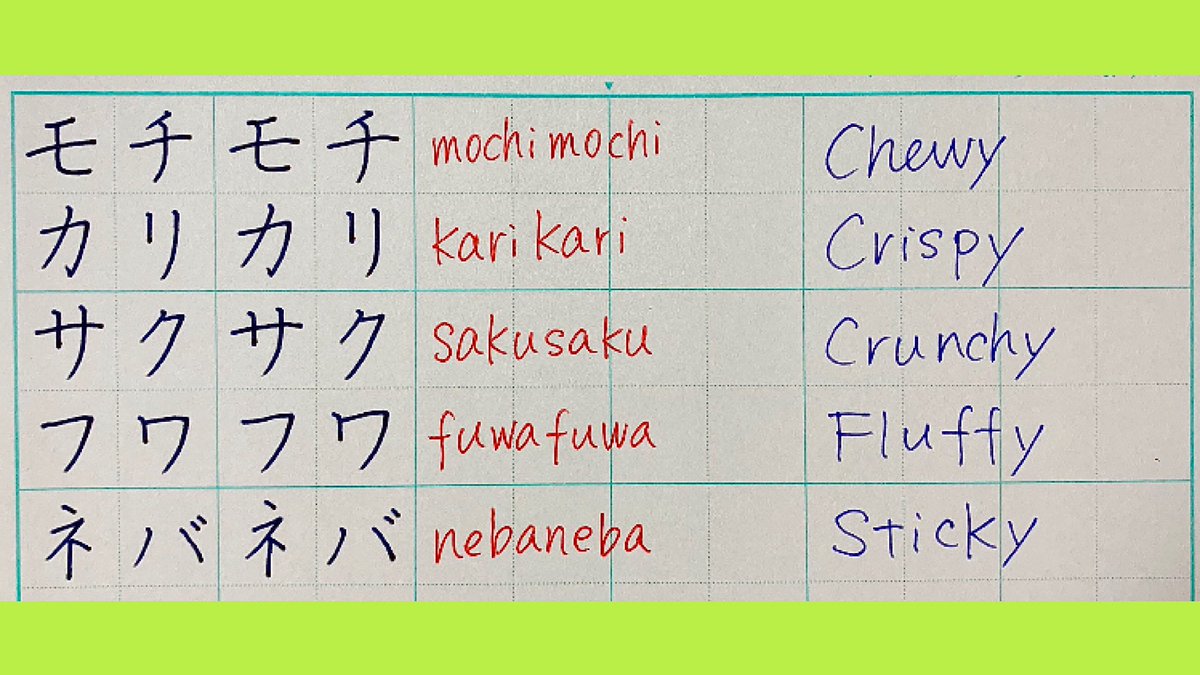 モチモチ mochi mochi Chewy
カリカリ kari kari Crispy
サクサク sakusaku Crunchy
フワフワ fuwa fuwa Fluffy
ネバネバ nebaneba Sticky